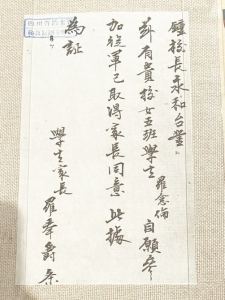 鍾校長永和台鑒：
茲有貴校女五班學生羅念倫自願參
加從軍已取得家長同意 此據
為証
學生家長
羅奉爵条